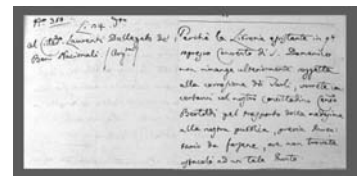 N.° 310. Li 24 ...
al Citt.° Laurenti Dellegato dei
Beni Nazionali (...)
Perchè la Libreria esistente in q.to
soppresso Convento di S. Domenico
non rimanga ulteriormente soggetta
alla corruzione di ..., vorrete con-
certarvi col nostro Concittadino Carlo
Bertoldi pel trasporto della medesima
alla nostra pubblica, previo Inven-
tario da farsene, ove non troviate
ostacolo ad un tale Punto